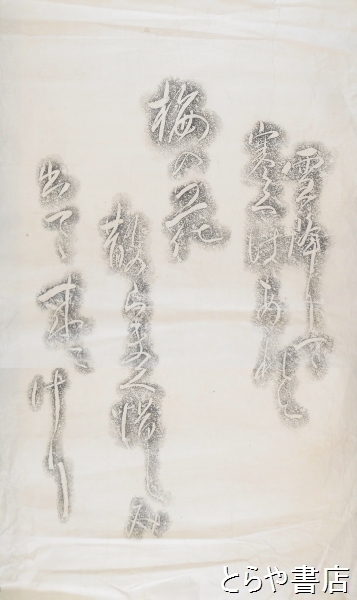 雪降りて
寒くはあれと
梅の花
散らまく惜しみ
出てゝ来にけり
とらや書店